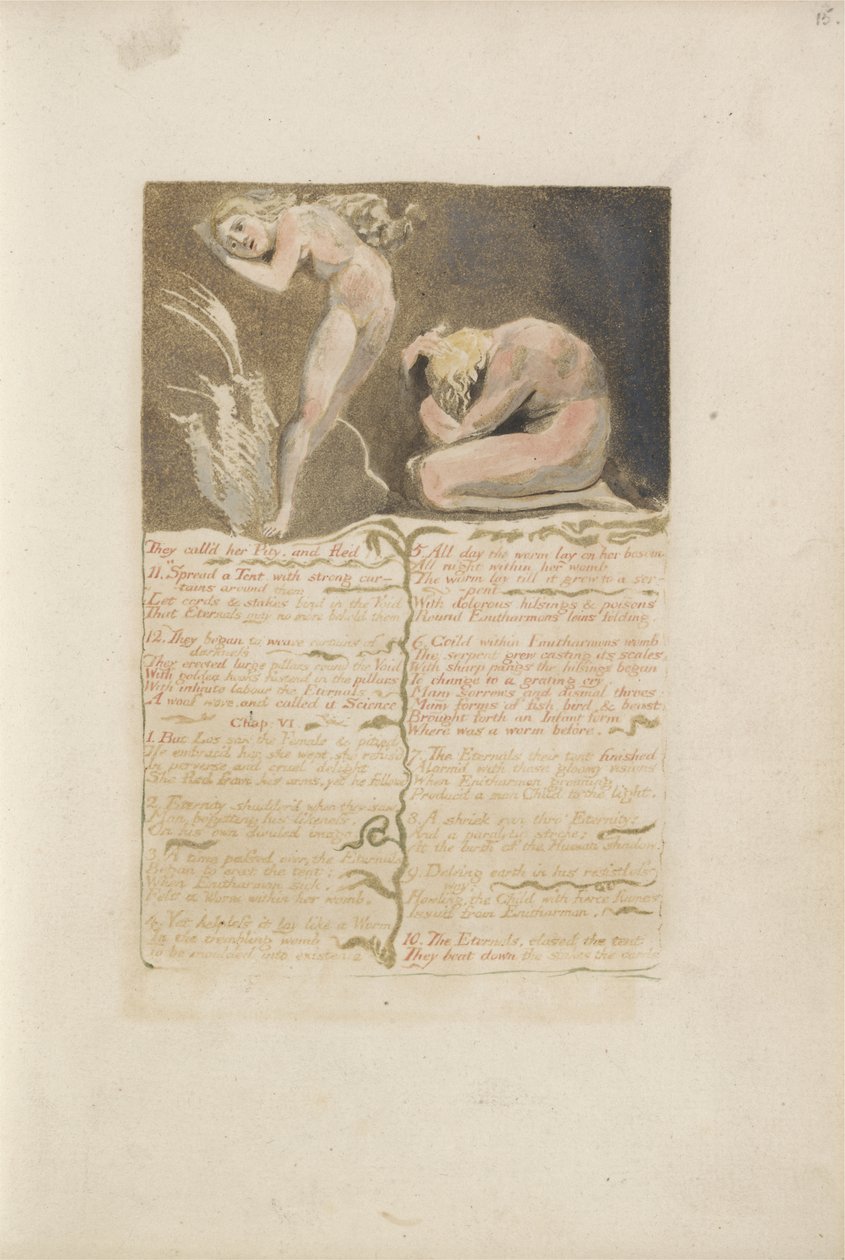 15.
They call'd her Pity, and fled
11. "Spread a Tent, with strong cur-
tains around them
Let cords & stakes bind in the Void
That Eternals may no more behold them
12. They began to weave curtains of
darkness
They erected large pillars round the Void
With golden hooks fastend in the pillars
With infinite labour the Eternals
A woof wove, and called it Science
Chap: VI
1. But Los saw the Female & pitied
He embrac'd her, she wept, she refus'd
In perverse and cruel delight
She fled from his arms, yet he follow'd
2. Eternity shudder'd when they saw,
Man, begetting his likeness,
On his own divided image.
3. A time passed over, the Eternals
Began to erect the tent;
When Enitharmon sick,
Felt a Worm within her womb.
4. Yet helpless it lay like a Worm
In the trembling womb
To be moulded into existence
5. All day the worm lay on her bosom
All night within her womb
The worm lay till it grew to a ser-
pent
With dolorous hissings & poisons
Round Enitharmons loins folding,
6. Coild within Enitharmons womb
The serpent grew casting its scales,
With sharp pangs the hissings began
To change to a grating cry,
Many sorrows and dismal throes,
Many forms of fish, bird & beast,
Brought forth an Infant form
Where was a worm before.
7. The Eternals their tent finished
Alarm'd with these gloomy visions
When Enitharmon groaning
Produc'd a man Child to the light.
8. A shriek ran thro' Eternity:
And a paralytic stroke;
At the birth of the Human shadow.
9. Delving earth in his resistless
way;
Howling, the Child with fierce flames
Issu'd from Enitharmon.
10. The Eternals, closed the tent
They beat down the stakes the cords